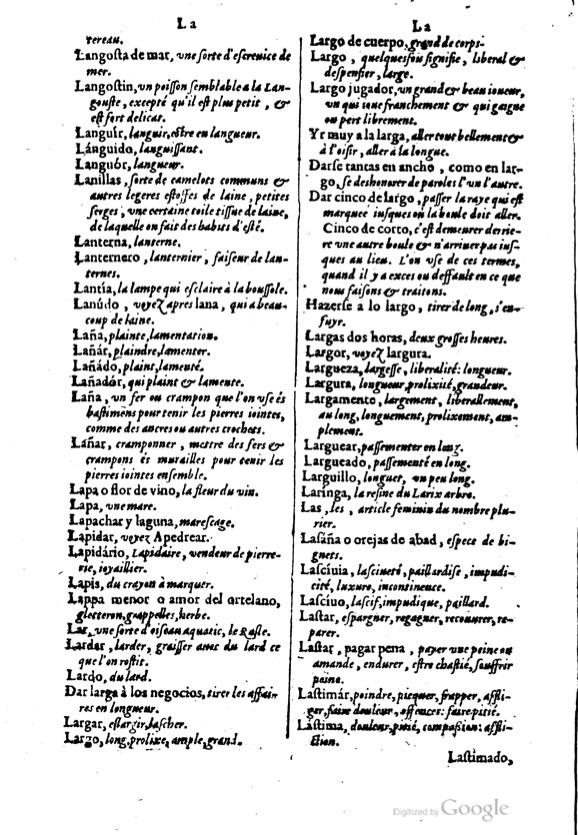 La
tereau.
Langosta de mar, vne sorte d'escreuice de
mer.
Langostin, vn poisson semblable a la Lan-
gouste, excepté qu'il est plus petit, &
est fort delicat.
Languír, languir, estre en langueur.
Lánguido, languissant.
Languór, langueur.
Lanillas, sorte de camelots communs &
autres legeres estoffes de laine, petites
serges, vne certaine toile tissue de laine,
de laquelle on fait des habits d'esté.
Lanterna, lanterne.
Lanternero, lanternier, faiseur de lan-
ternes.
Lantía, la lampe qui esclaire à la boussole.
Lanúdo, voyez apres lana, qui a beau-
coup de laine.
Laña, plainte, lamentation.
Lañár, plaindre, lamenter.
Lañádo, plaint, lamenté.
Lañadór, qui plaint & lamente.
Laña, vn fer ou crampon que l'on vse és
bastimens pour tenir les pierres iointes,
comme des ancres ou autres crochets.
Láñar, cramponner, mettre des fers &
crampons és murailles pour tenir les
pierres iointes ensemble.
Lapa o flor de vino, la fleur du vin.
Lapa, vne mare.
Lapachar y laguna, marescage.
Lapidar, voyez Apedrear.
Lapidário, Lapidaire, vendeur de pierre-
rie, ioyaillier.
Lapis, du crayon à marquer.
Lappa menor o amor del ortelano,
gletteron, grappelles, herbe.
Lar, vne sorte d'oiseau aquatic, le Rasle.
Lardar, larder, graisser auec du lard ce
que l'on rostit.
Lardo, du lard.
Dar larga à los negocios, tirer les affair-
res en longueur.
Largar, eslargir, lascher.
Largo, long, prolixe, ample, grand.
La
Largo de cuerpo, grand de corps.
Largo, quelquesfois signifie, liberal &
despensier, large.
Largo jugador, vn grand & beau ioueur,
vn qui ioue franchement & qui gagne
ou pert librement.
Yr muy a la larga, aller tout bellement &
à l'oisir, aller à la longue.
Darse tantas en ancho, como en lar-
go, se deshonorer de paroles l'vn l'autre.
Dar cinco de largo, passer la raye qui est
marquee iusques où la boule doit aller.
Cinco de corto, c'est demeurer derrie-
re vne autre boule & n'arriuer pas ius-
ques au lieu. L'on vse de ces termes,
quand il y a exces ou deffault en ce que
nous faisons & traitons.
Hazerse a lo largo, tirer de long, s'en-
fuyr.
Largas dos horas, deux grosses heures.
Largor, voyez largura.
Largueza, largesse, liberalité: longueur.
Largura, longueur, prolixité, grandeur.
Largamento, largement, liberallement,
au long, longuement, prolixement, am-
plement.
Larguear, passementer en long.
Largueado, passementé en long.
Larguillo, longuet, vn peu long.
Laringa, la resine du Larix arbre.
Las, les, article feminin du nombre plu-
rier.
Lasáña o orejas de abad, espece de bi-
gnets.
Lascíuia, lasciueté, paillardise, impudi-
cité, luxure, incontinence.
Lasciuo, lascif, impudique, paillard.
Lastar, espargner, regagner, recouurer, re-
parer.
Lastar, pagar pena, payer vne peine ou
amande, endurer, estre chastié, souffrir
peine.
Lastimár, poindre, picquer, frapper, affli-
ger, faire douleur, offencer: faire pitié.
Lástima, douleur, pitié, compassion: affli-
ction.
Lastimado,
Digitized by Google